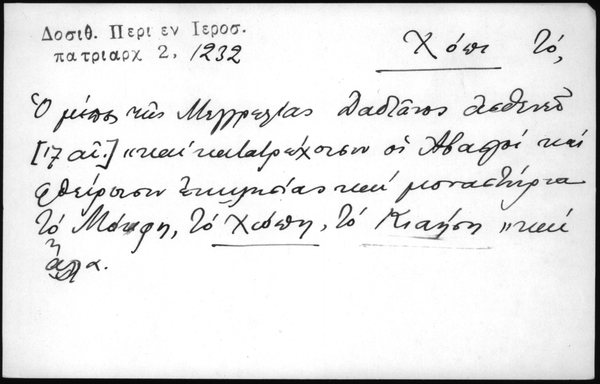 Δοσιθ. Περι εν Ιεροσ.
πατριαρχ 2, 1232
Χόπι τό,
Ὁ μέπος τῆς Μεγρελίας Δαδιάνος
[17 αἰ.] "καί κατατρέχουσιν οἱ Ἀβασγοί καί
φθείρουσιν ἐκκλησίας καί μοναστήρια
τό Μόκφη, τό Χώπη, τό Κιαήση "καί
ἄλλα.